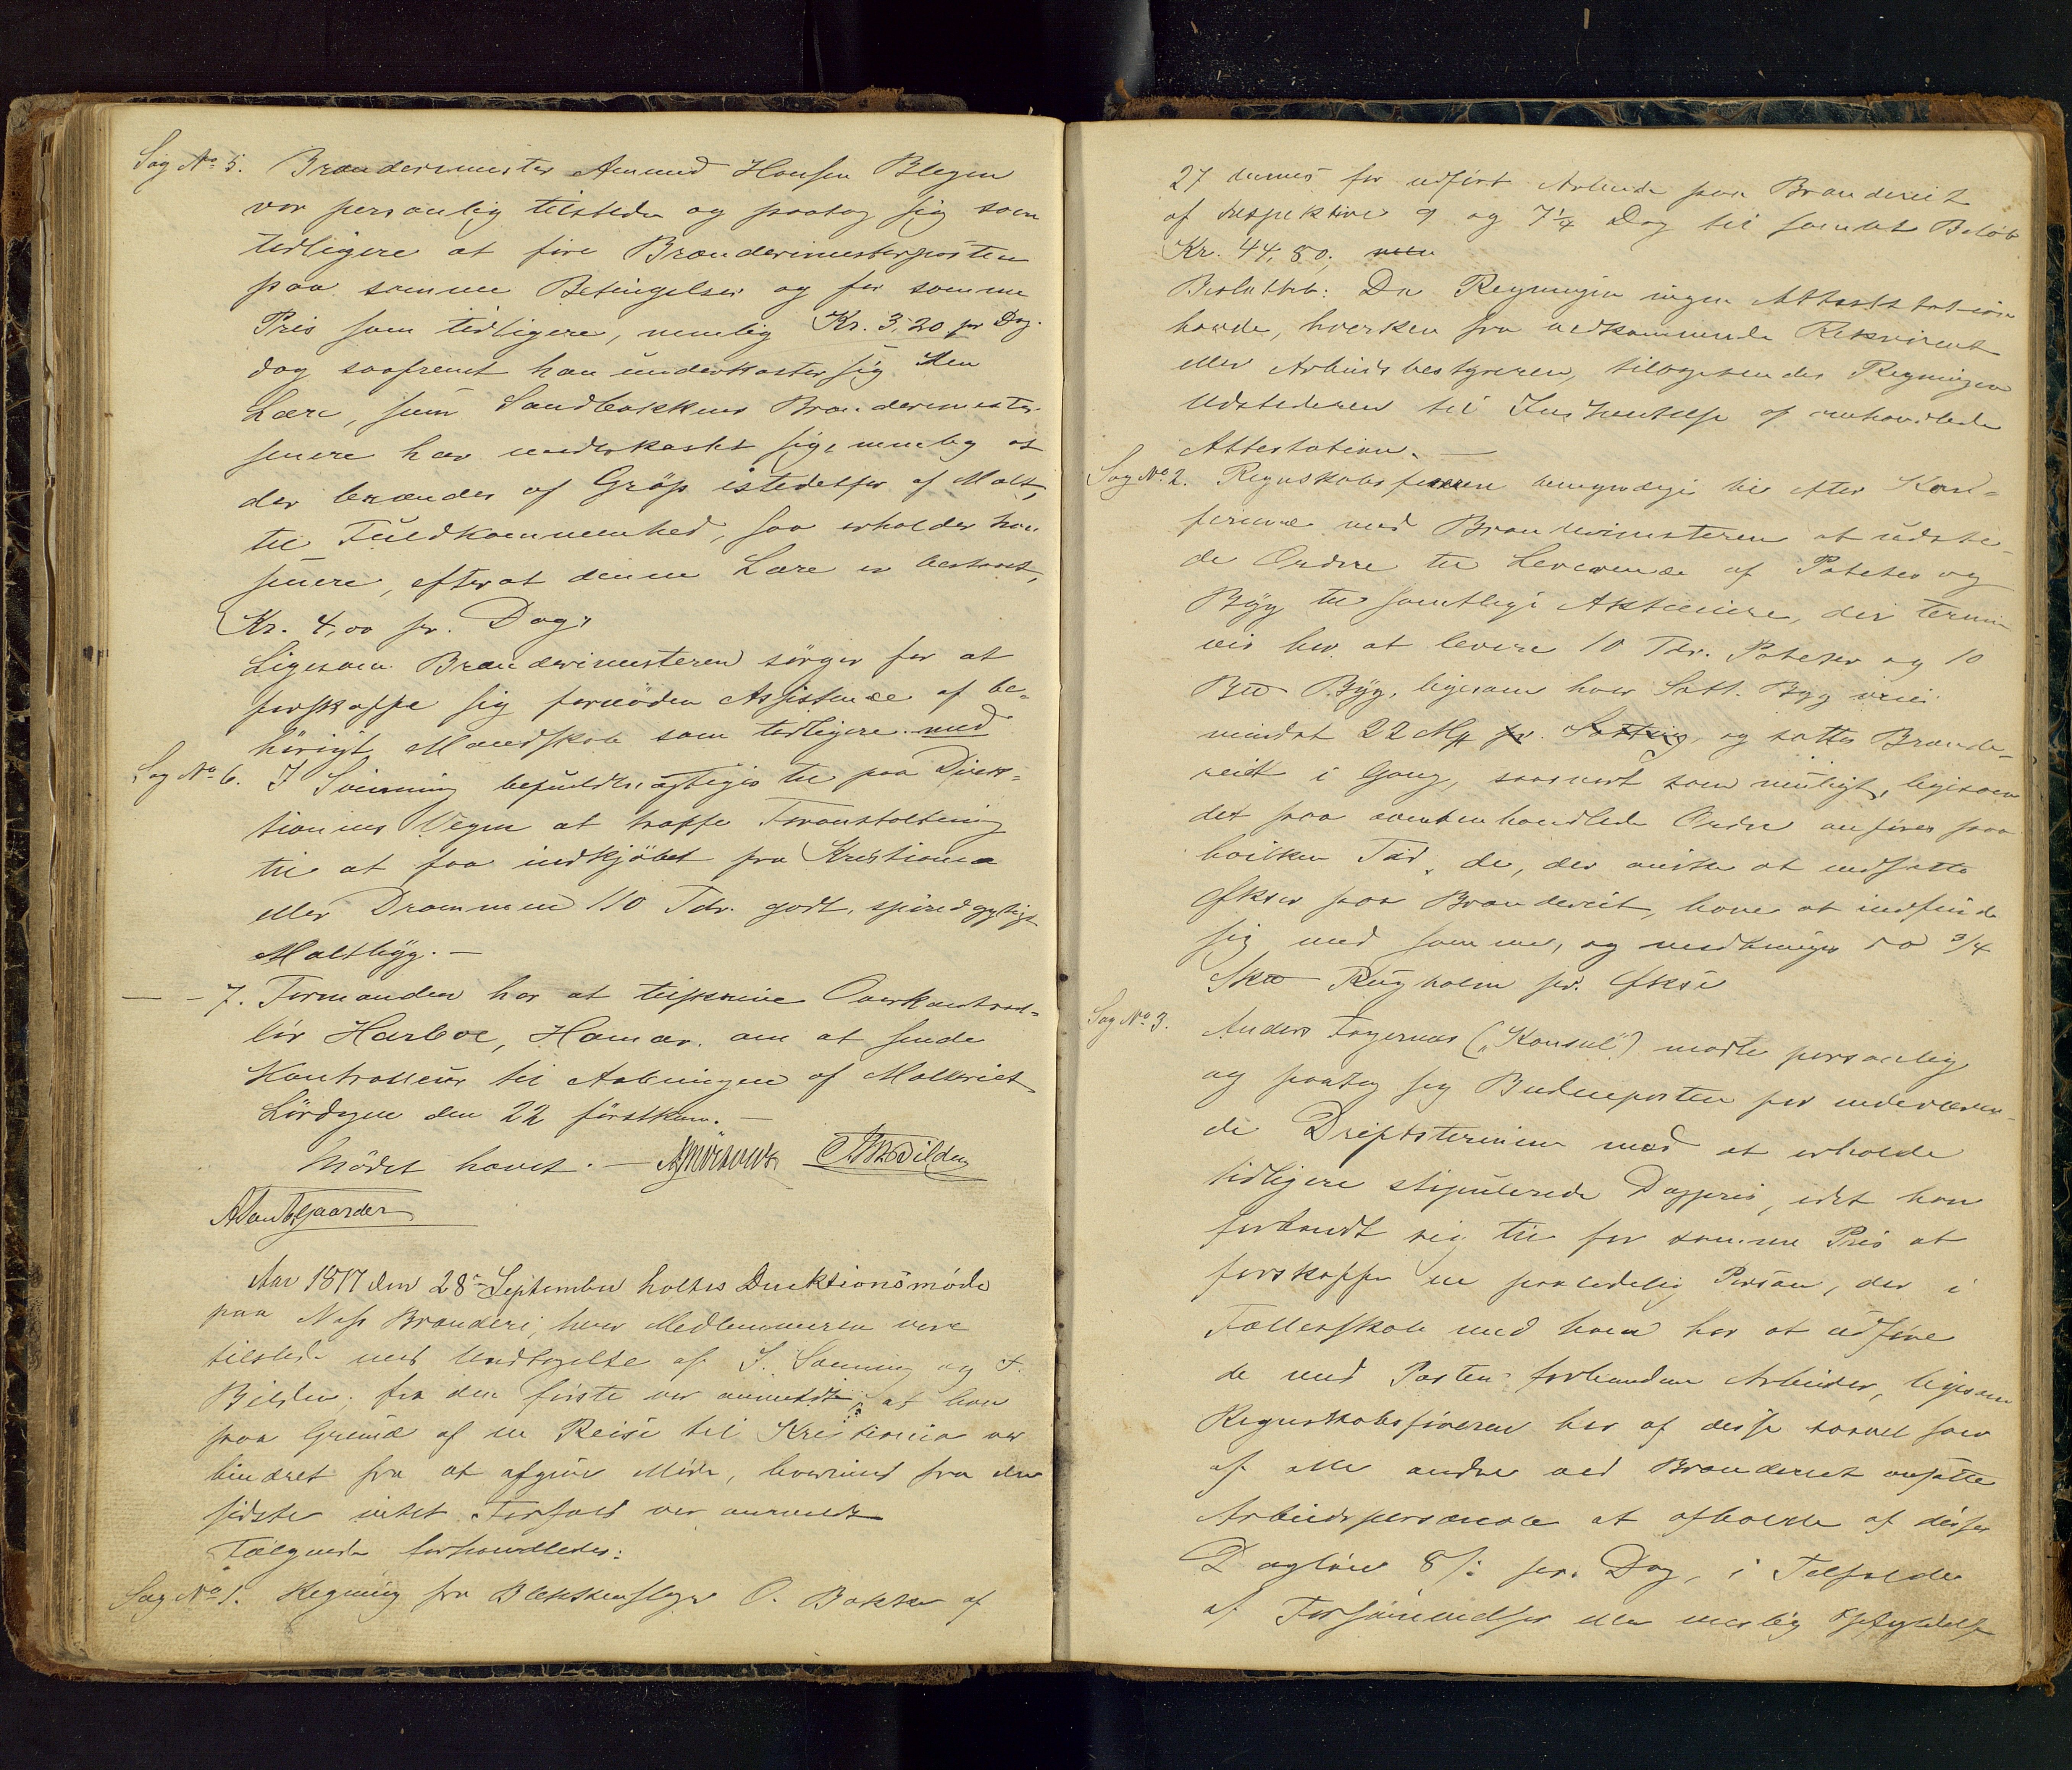 Sag No 5. Brænderimester Amund Hansen Blegen
var personlig tilstede og paatog sig som
tidligere at føre Brænderimesterposten
paa samme Betingelser og for samme
Pris som tidligere, nemlig Kr. 3,20 pr Dag.
dog saafremt han underkaster sig den
Lære, som Sandbakkens Brænderimester
senere har underkastet sig, nemlig at
der brændes af Gröp istedetfor af Malt,
til Fuldkommenhed, saa erholder han
senere, efterat denne Lære er bestaaet,
Kr. 4,00 pr. Dag,
Ligesom Brænderimesteren sörger for at
forskaffe sig fornöden Assistence af be-
hörigt Mandskab som tidligere med
Sag No 6. I Svenning befuldmægtiges til paa Direk-
tionens Vegne at træffe Foranstaltning
til at faa indkjöbet fra Kristiania
eller Drammen 110 Tdr. godt, spiredygtigt
Maltbyg. —
— - 7. Formanden har at tilskrive Overkontrol-
lör Harboe, Hamar, om at sende
Kontrolleur til Aabningen af Malteriet
Lördagen den 22 förstkom. —
Mödet hævet. —
Aar 1877 den 28de September holtes Direktionsmöde
paa Næss Brænderi, hvor Medlemmerne vare
tilstede med Undtagelse af I. Svenning og
Bilden; fra den förste var anmeldt, at han
paa Grund af en Reise til Kristiania var
hindret fra at afgive Möde, hvorimod fra den
sidste intet Forfald var anmeldt
Fölgende forhandledes:
Sag No 1. Regning fra Blikkenslager O. Bakke af
27 dennes for udfört Arbeide paa Brænderiet
af respektive 9 og 7¼ Dag til samlet Belöb
Kr. 44,80; men
Besluttet: Da Regningen ingen Attestation
havde, hverken fra vedkommende Rekvirent
eller Arbeidsbestyreren, tilbagesendes Regningen
Udstederen til Indhentelse af omhandlede
Attestation. —
Sag No 2. Regnskabsföreren bemyndiges til efter Kon-
ferance med Brænderimesteren at udste-
de Ordre til Leverance af Poteter og
Byg til samtlige Aktieeiere, der termin-
vis har at levere 10 Tdr. Poteter og 10
Byg, ligesom hver Sætt. Byg veier
mindst 22 Mrk pr. Sætting, og sættes Brænde-
riet i Gang, saasnart som muligt, ligesom
det paa ovenomhandlede Ordre anföres paa
hvilken Tid, de, der önske at indsætte
Öxer paa Brænderiet, have at indfinde
sig med samme, og medbringes da 3/4
Rughalm pr. Öxe
Sag No 3. Anders Fagernæs („Konsul") mödte personlig
og paatog sig Budeieposten for indeværen-
de Driftstermin med at erholde
tidligere stipulerede Dagpris, idet han
forbandt sig til for samme Pris at
forskaffe en paalidelig Person, der i
Fællesskab med ham har at udföre
de med Posten forbundne Arbeider, ligesom
Regnskabsföreren har af disse saavel som
af alle andre ved Brænderiet ansatte
Arbeidspersonale at afholde af disses
Daglön 8 /: pr. Dag, i Tilfælde
af Forsömmelser eller urigtig Opfyldelse